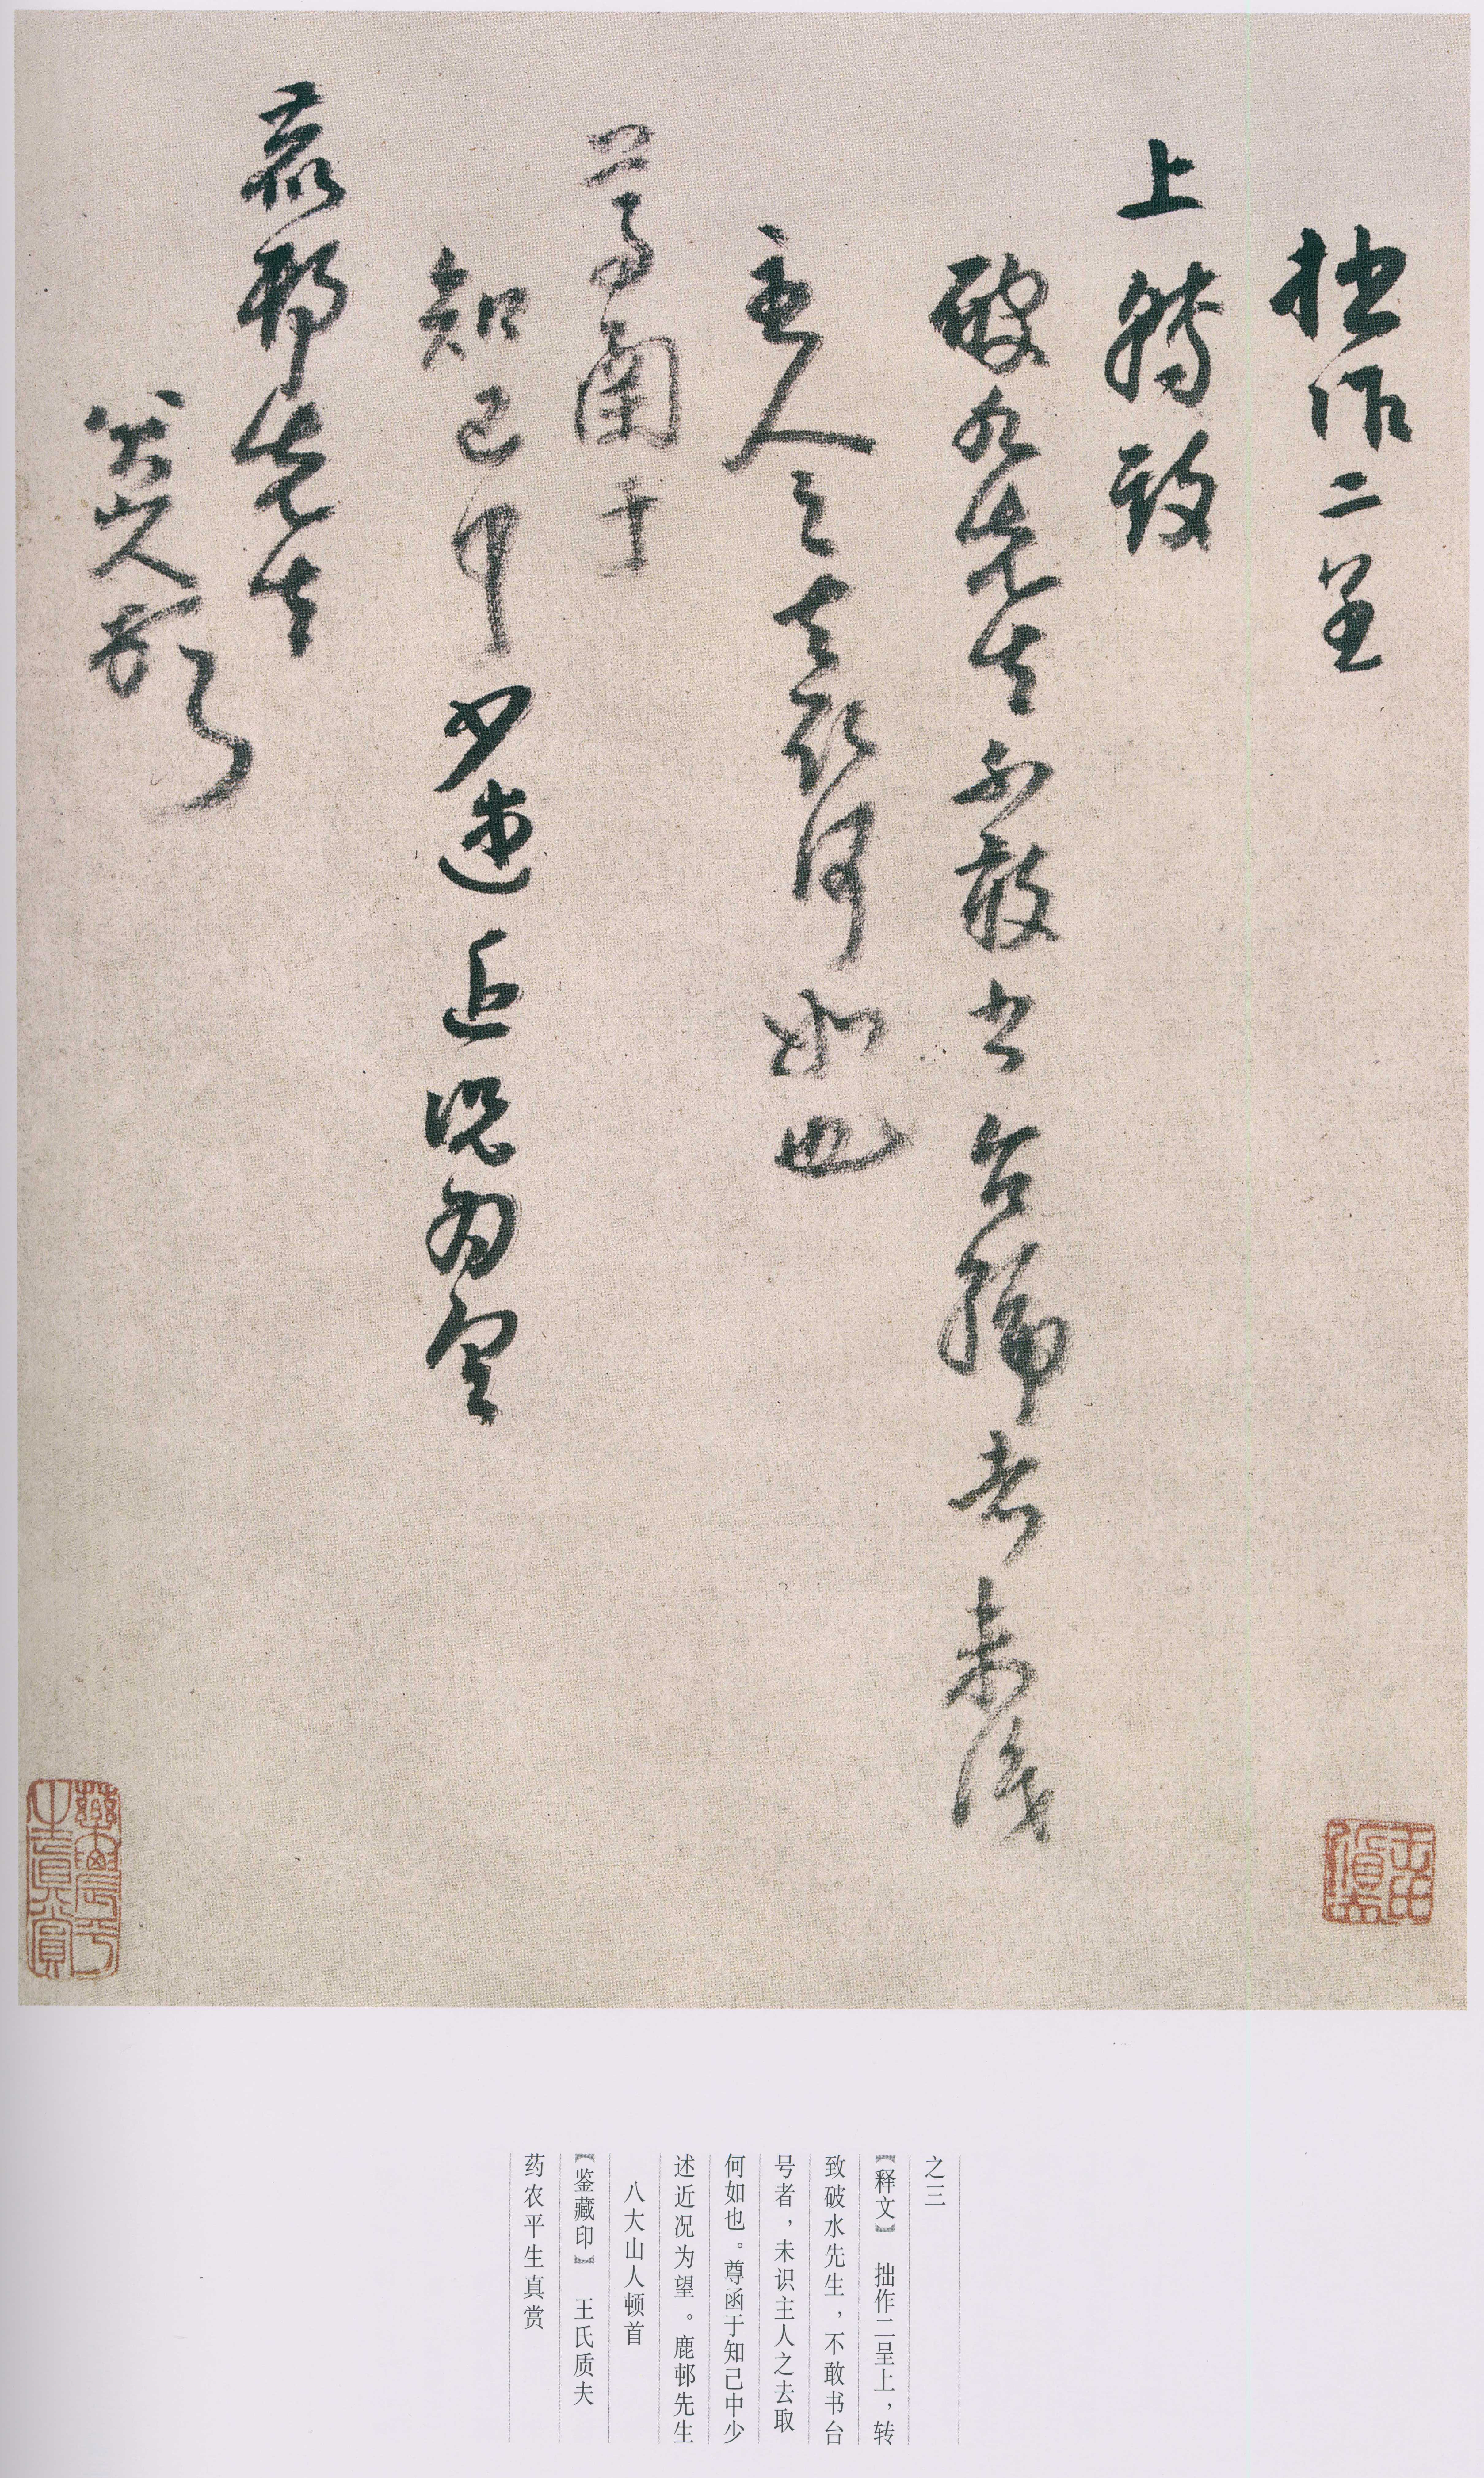 拙作二呈
上转致
破水先生不敢书台号者未识
主人之去取何如也
尊函于
知己中少述近况为望
鹿邨先生
八大山人顿首
药农平生真赏
之三
【释文】 拙作二呈上，转
致破水先生，不敢书台
号者，未识主人之去取
何如也。尊函于知己中少
述近况为望。鹿邨先生
八大山人顿首
【鉴藏印】 王氏质夫
药农平生真赏